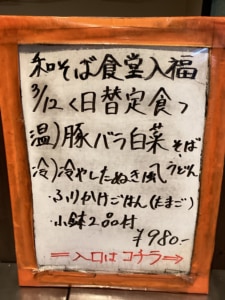 和そば食堂入福
3/12<日替定食>
温)豚バラ白菜そば
冷)冷やしたぬき風うどん
・ふりかけごはん(たまご)
・小鉢2品付
¥980.-
⇒入口はコチラ⇒